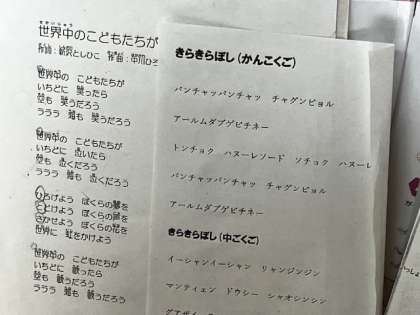 せかいじゅう
世界中のこどもたちが
作詞：新沢としひこ　作曲：中川ひろ
世界中の　こどもたちが
いちどに　笑ったら
空も　笑うだろう
ラララ　海も　笑うだろう
世界中の　こどもたちが
いちどに　泣いたら
空も　泣くだろう
ラララ　海も　泣くだろう
ひろげよう　ぼくらの夢を
とどけよう　ぼくらの声を
さかせよう　ぼくらの花を
世界に　虹をかけよう
世界中の　こどもたちが
いちどに　歌ったら
空も　歌うだろう
ラララ　海も　歌うだろう
きらきらぼし（かんこくご）
パンチャッパンチャッ　チャグンビョル
アールムダプゲビチネー
トンチョク　ハヌーレソード　ソチョク　ハヌーレ
パンチャッパンチャッ　チャグンビョル
アールムダプゲビチネー
きらきらぼし（中ごくご）
イーシャンイーシャン　リャンジンジン
マンティェン　ドウシー　シャオシンシン